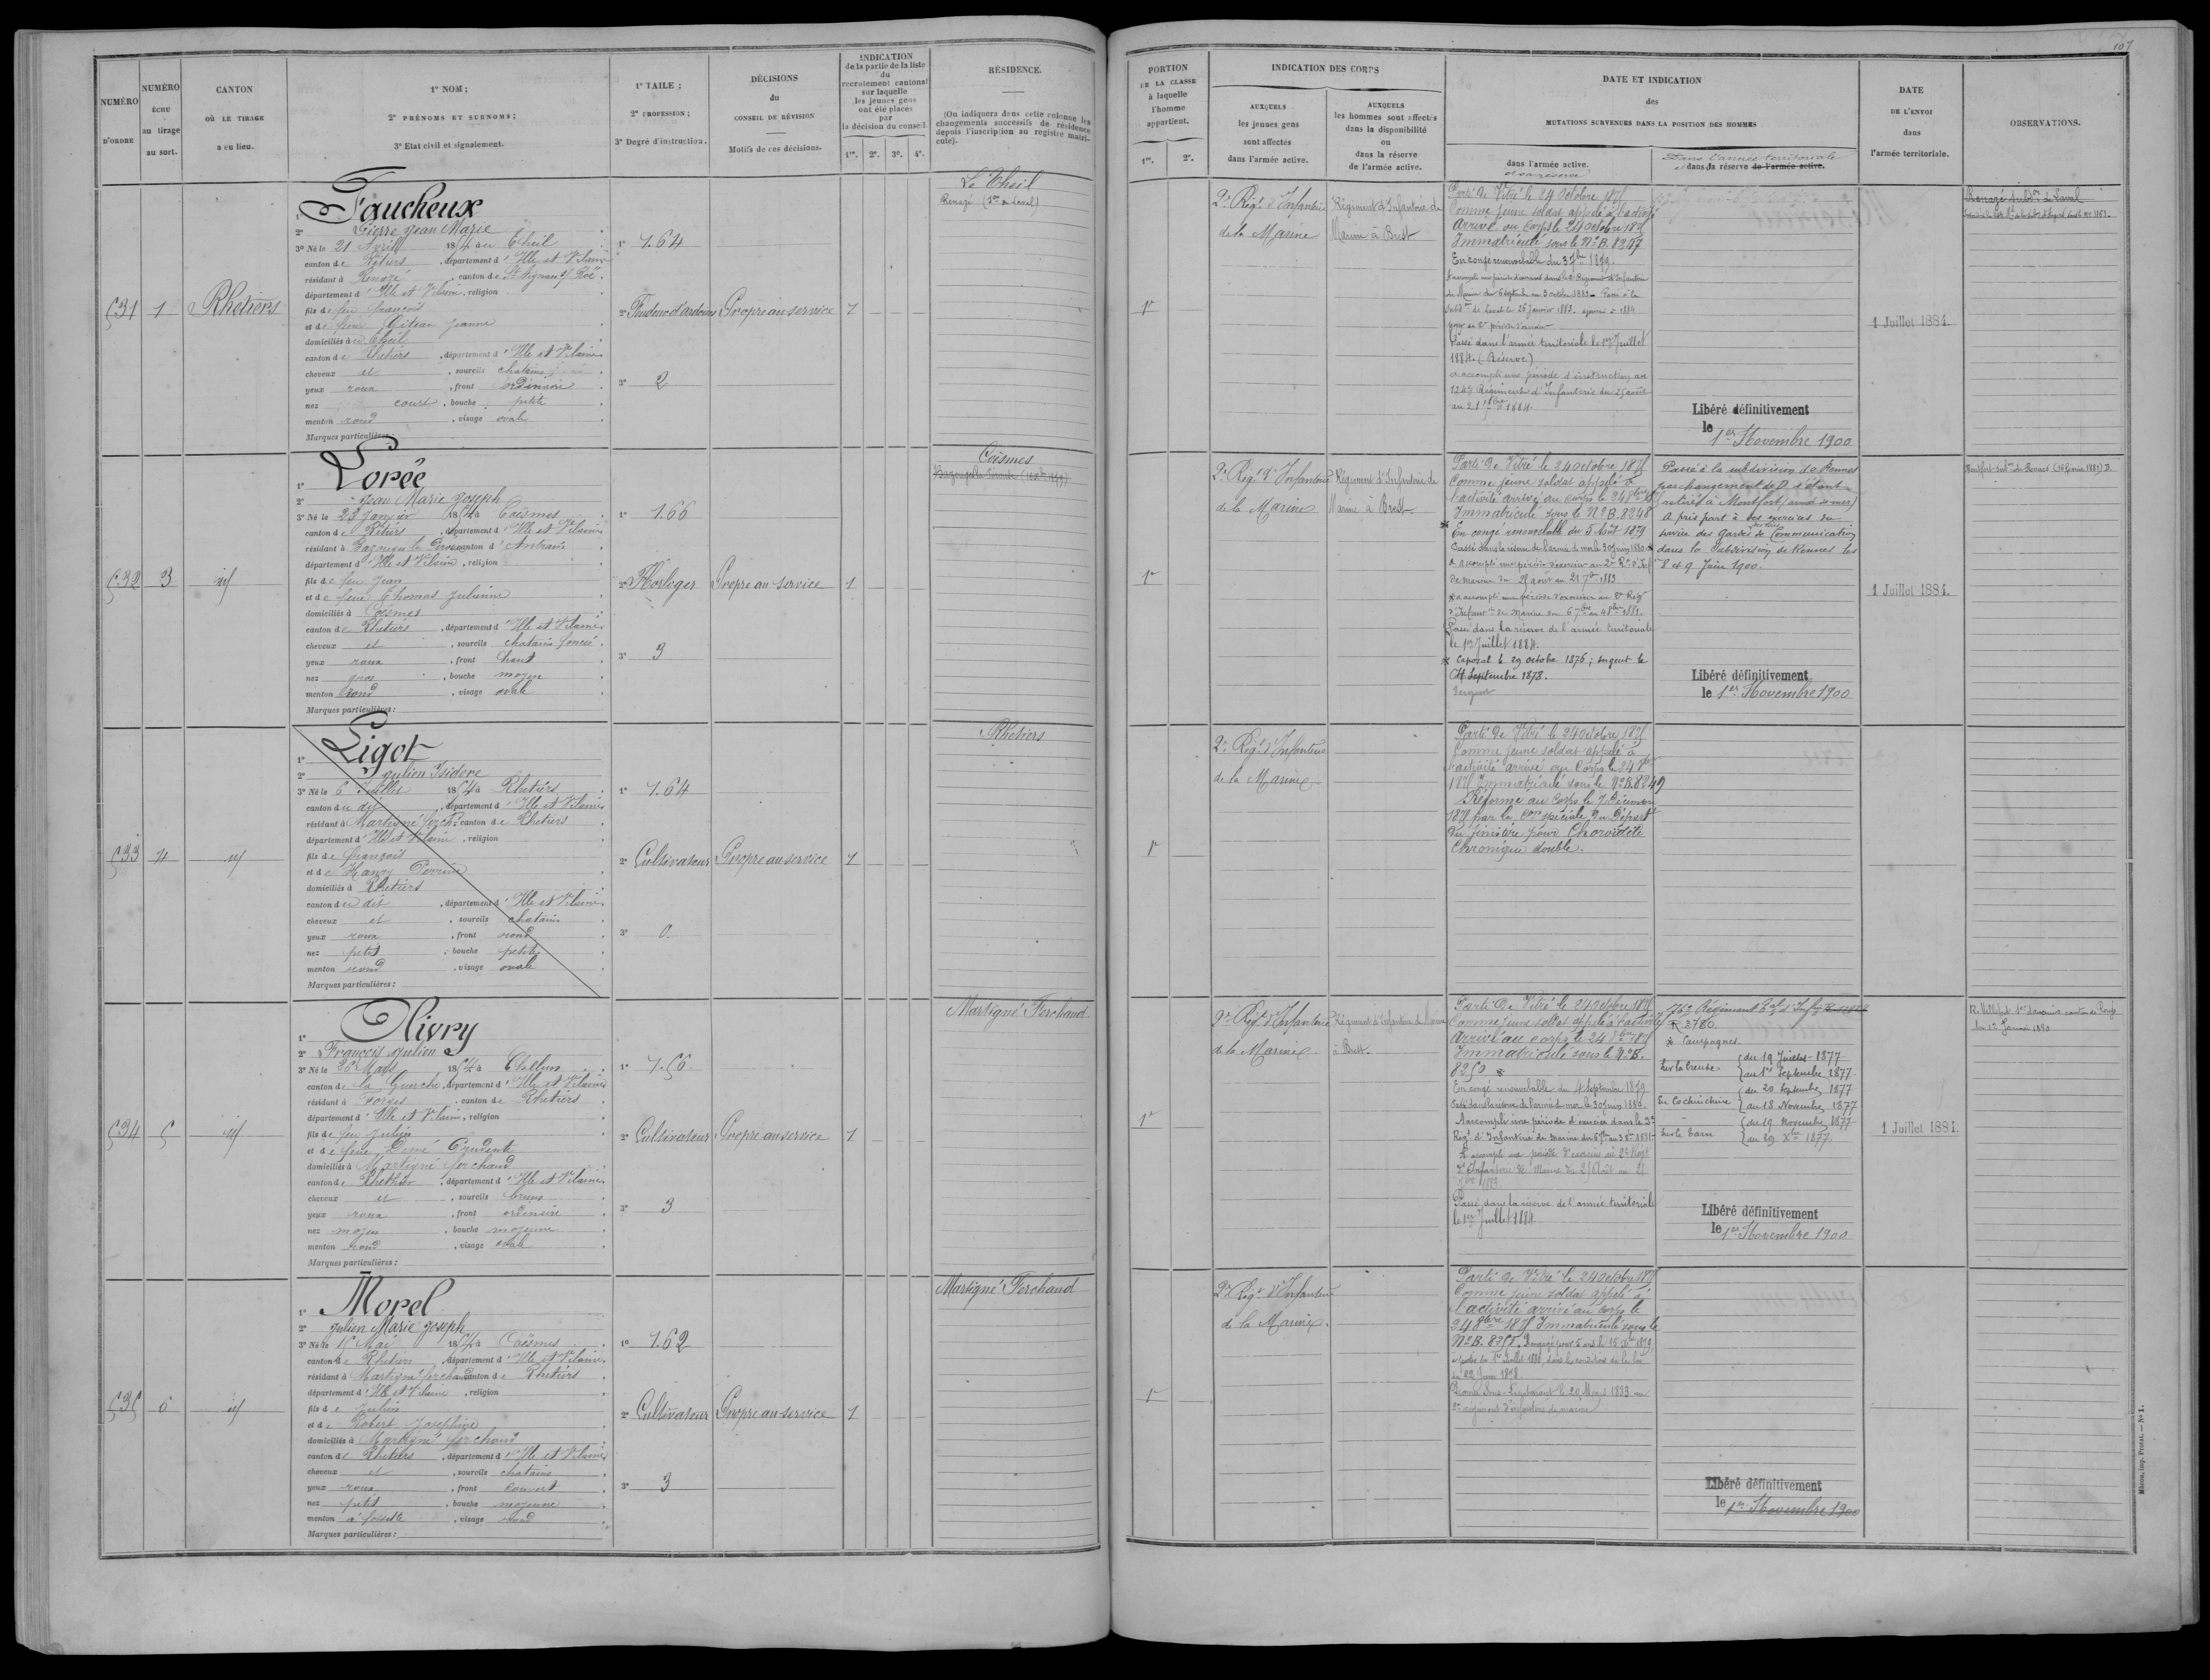 107
NUMÉRO
D'ORDRE
NUMÉRO
ÉCHU
au tirage
au sort.
CANTON
OÙ LE TIRAGE
a eu lieu.
1º NOM ;
2º PRÉNOMS ET SURNOMS ;
3º Etat civil et signalement.
1º TAILE ;
2º PROFESSION ;
3º Degré d'instruction.
DÉCISIONS
du
CONSEIL DE RÉVISION
Motifs de ces décisions.
INDICATION
de la partie de la liste
du
recrutement cantonal
sur laquelle
les jeunes gens
ont été placés
par
la décision du conseil.
1re. 2e. 3e. 4e.
RÉSIDENCE.
(On indiquera dans cette colonne les
changements successifs de résidence
depuis l'inscription au registre matri-
cule).
PORTION
DE LA CLASSE
à laquelle
l'homme
appartient.
1re. 2e.
INDICATION DES CORPS
AUXQUELS
les jeunes gens
sont affectés
dans l'armée active.
AUXQUELS
les hommes sont affectés
dans la disponibilité
ou
dans la réserve
de l'armée active.
DATE ET INDICATION
des
MUTATIONS SURVENUES DANS LA POSITION DES HOMMES
dans l'armée active.
et sa réserve
Dans l'armée territoriale
et dans sa réserve de l'armée active.
DATE
DE L'ENVOI
dans
l'armée territoriale.
OBSERVATIONS.
531 1 Rhétiers
1º Faucheux
2º Pierre Jean Marie
3º Né le 21 Avril 1854 au Theil
canton de Rétiers, département d'Ille et Vilaine
résidant à Renazé, canton de St Aignan s/ Roë
département d'Ille et Vilaine, religion
fils de feu François
et de feue Gitean Jeanne
domiciliés au Theil
canton de Rhétiers, département d'Ille et Vilaine
cheveux et, sourcils chatains
yeux roux, front ordinaire
nez court, bouche petite
menton rond, visage ovale
Marques particulières :
1º 1.64
2º Fendeur d'ardoises
3º 2
Propre au service 1
Le Theil
Renazé (Son de Laval)
1re
2e Régt d'Infanterie
de la Marine
Régiment d'Infanterie de
Marine à Brest
Parti de Vitré le 24 Octobre 1875
Comme jeune soldat appelé à l'activité
Arrivé au Corps le 24 octobre 1875
Immatriculé sous le Nº B. 8247
En congé renouvelable du 3 7bre 1879.
Passé dans l'armée territoriale le 1er Juillet
1884. (Réserve)
a accompli une période d'instruction au
124e Régiment d'Infanterie du 25 août
au 21 7bre 1884.
Libéré définitivement
le 1er Novembre 1900
1 Juillet 1884.
Renazé Subdon de Laval
532 3 id
1º Lorée
2º Jean Marie Joseph
3º Né le 23 Janvier 1854 à Coësmes
canton de Rétiers, département d'Ille et Vilaine
résidant à Bazouges la Pérouse canton d'Antrain
département d'Ille et Vilaine, religion
fils de feu Jean
et de feue Thomas Julienne
domiciliés à Coësmes
canton de Rhétiers, département d'Ille et Vilaine
cheveux et, sourcils chatains foncés
yeux roux, front haut
nez gros, bouche moyen
menton rond, visage ovale
Marques particulières :
1º 1.66
2º Horloger
3º 3
Propre au service 1
Coësmes
1re
2e Régt d'Infanterie
de la Marine
Régiment d'Infanterie de
Marine à Brest
Parti de Vitré le 24 octobre 1875
Comme jeune soldat appelé à
l'activité arrivé au corps le 24 8bre 75
Immatriculé sous le Nº B. 8248
En congé renouvelable du 5 Août 1879
Passé dans la réserve de l'armée de mer le 30 Juin 1880
a accompli une période d'exercice au 2e Rt d'Inf
de marine du 25 août au 21 7bre 1883
a accompli une période d'exercice au 2e Régt
d'Infantie de Marine du 6 7bre au 4 8bre 1881.
Passé dans la réserve de l'armée territoriale
le 1er Juillet 1884.
Caporal le 29 octobre 1876 ; sergent le
4 Septembre 1878.
Sergent
Passé à la subdivision de Rennes
par changement de D. s'étant
retiré à Montfort
A pris part à des exercices du
service des Gardes des Voies de Communication
dans la Subdivision de Rennes les
8 et 9 Juin 1900.
Libéré définitivement
le 1er Novembre 1900
1 Juillet 1884.
Montfort subon de Rennes (16 février 1881) D.
533 4 id
1º Ligot
2º Julien Isidore
3º Né le 6 Juillet 1854 à Rhétiers
canton du dit, département d'Ille et Vilaine
résidant à Martigné ferchd canton de Rhétiers
département d'Ille et Vilaine, religion
fils de François
et de Hanry Perrine
domiciliés à Rhétiers
canton du dit, département d'Ille et Vilaine
cheveux et, sourcils chatains
yeux roux, front rond
nez petit, bouche petite
menton rond, visage ovale
Marques particulières :
1º 1.64
2º Cultivateur
3º 0
Propre au service 1
Rhétiers
1re
2e Régt d'Infanterie
de la Marine
Parti de Vitré le 24 octobre 1875
Comme jeune soldat appelé à
l'activité arrivé au Corps le 24 8bre
1875 Immatriculé sous le Nº B. 8249
Réformé au Corps le 7 Décembre
1875 par la Con spéciale du Départt
du finistère pour Choroïdite
Chronique double.
534 5 id
1º Olivry
2º François Julien
3º Né le 26 Mars 1854 à Chelun
canton de la Guerche, département d'Ille et Vilaine
résidant à Forges, canton de Rhétiers
département d'Ille et Vilaine, religion
fils de feu Julien
et de feue Demé Prudente
domiciliés à Martigné ferchaud
canton de Rhétiers, département d'Ille et Vilaine
cheveux et, sourcils bruns
yeux roux, front ordinaire
nez moyen, bouche moyenne
menton rond, visage ovale
Marques particulières :
1º 1.56
2º Cultivateur
3º 3
Propre au service 1
Martigné Ferchaud
1re
2e Régt d'Infanterie
de la Marine
Régiment d'Infanterie de Marine
à Brest
Parti de Vitré le 24 octobre 1875
Comme jeune soldat appelé à l'activité
Arrivé au corps le 24 8bre 1875
Immatriculé sous le Nº B.
8250
En congé renouvelable du 4 Septembre 1879
Passé dans la réserve de l'armée de mer le 30 Juin 1880.
A accompli une période d'exercices dans le 2e
Régt d'Infanterie de marine
A accompli une période d'exercice au 2e Régt
d'Infanterie de Marine du 25 Août au 21
7bre 1883.
Passé dans la réserve de l'armée territoriale
le 1er Juillet 1884
76e Régiment tal d'Infie
R 3780
Campagnes
Sur la Creuse { du 19 Juillet 1877
au 1er Septembre 1877
En Cochinchine { du 20 Septembre 1877
au 18 Novembre 1877
Sur le Tarn { du 19 Novembre 1877
au 29 Xbre 1877
Libéré définitivement
le 1er Novembre 1900
1 Juillet 1884.
535 6 id
1º Morel
2º Julien Marie Joseph
3º Né le 15 Mai 1854 à Coësmes
canton de Rhétiers, département d'Ille et Vilaine
résidant à Martigné ferchaud canton de Rhétiers
département d'Ille et Vilaine, religion
fils de Julien
et de Robert Joséphine
domiciliés à Martigné ferchaud
canton de Rhétiers, département d'Ille et Vilaine
cheveux et, sourcils chatains
yeux roux, front couvert
nez petit, bouche moyenne
menton à fossette, visage rond
Marques particulières :
1º 1.62
2º Cultivateur
3º 3
Propre au service 1
Martigné Ferchaud
1re
2e Régt d'Infanterie
de la Marine.
Parti de Vitré le 24 octobre 1875
Comme jeune soldat appelé à
l'activité arrivé au corps le
24 8bre 1875 Immatriculé sous le
Nº B. 8255. Rengagé pour 5 ans le 15 Xbre 1879
à partir du 1er Juillet 1880, dans les conditions de la loi
du 22 Juin 1878.
Promu Sous-Lieutenant le 20 Mars 1883 au
2e régiment d'infanterie de marine
Libéré définitivement
le 1er Novembre 1900
Mâcon, imp. Protat. — Nº 1.